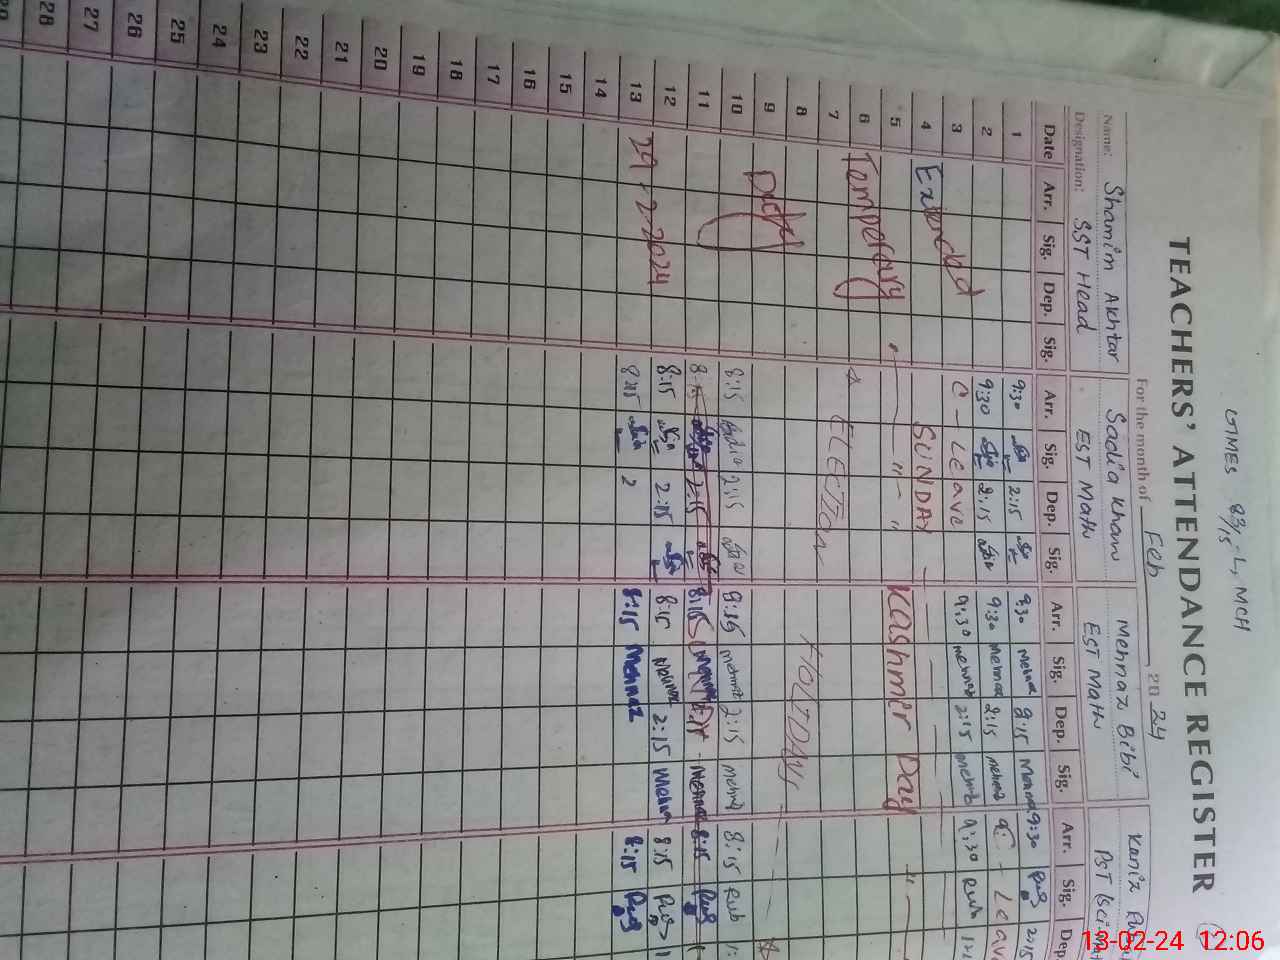 GTMES 83/15-L, MCH
TEACHERS' ATTENDANCE REGISTER
For the month of Feb 2024
Name: Shamim Akhtar Sadia Khan Mehnaz Bibi Kaniz
Designation: SST Head EST Math EST Math PST
Date Arr. Sig. Dep. Sig. Arr. Sig. Dep. Sig. Arr. Sig. Dep. Sig. Arr. Sig. Dep.
1 9:30 2:15 9:30 2:15 9:30 2:15
2 9:30 2:15 9:30 Mehnaz 2:15 Mehnaz C - Leave
3 C - Leave 9:30 Mehnaz 2:15 Mehnaz 9:30
4 Extended SUNDAY
5 " Kashmer Day "
6 Temperary
7 ELECTION
8 HOLIDAYS
9 Duty
10 8:15 Sadia 2:15 8:15 Mehnaz 2:15 Mehnaz 8:15 Rub
11 8:15 2:15 8:15 8:15
12 8:15 2:15 8:15 2:15 Mehnaz 8:15
13 29-2-2024 8:15 2 8:15 Mehnaz 8:15
14
15
16
17
18
19
20
21
22
23
24
25
26
27
28
13-02-24 12:06